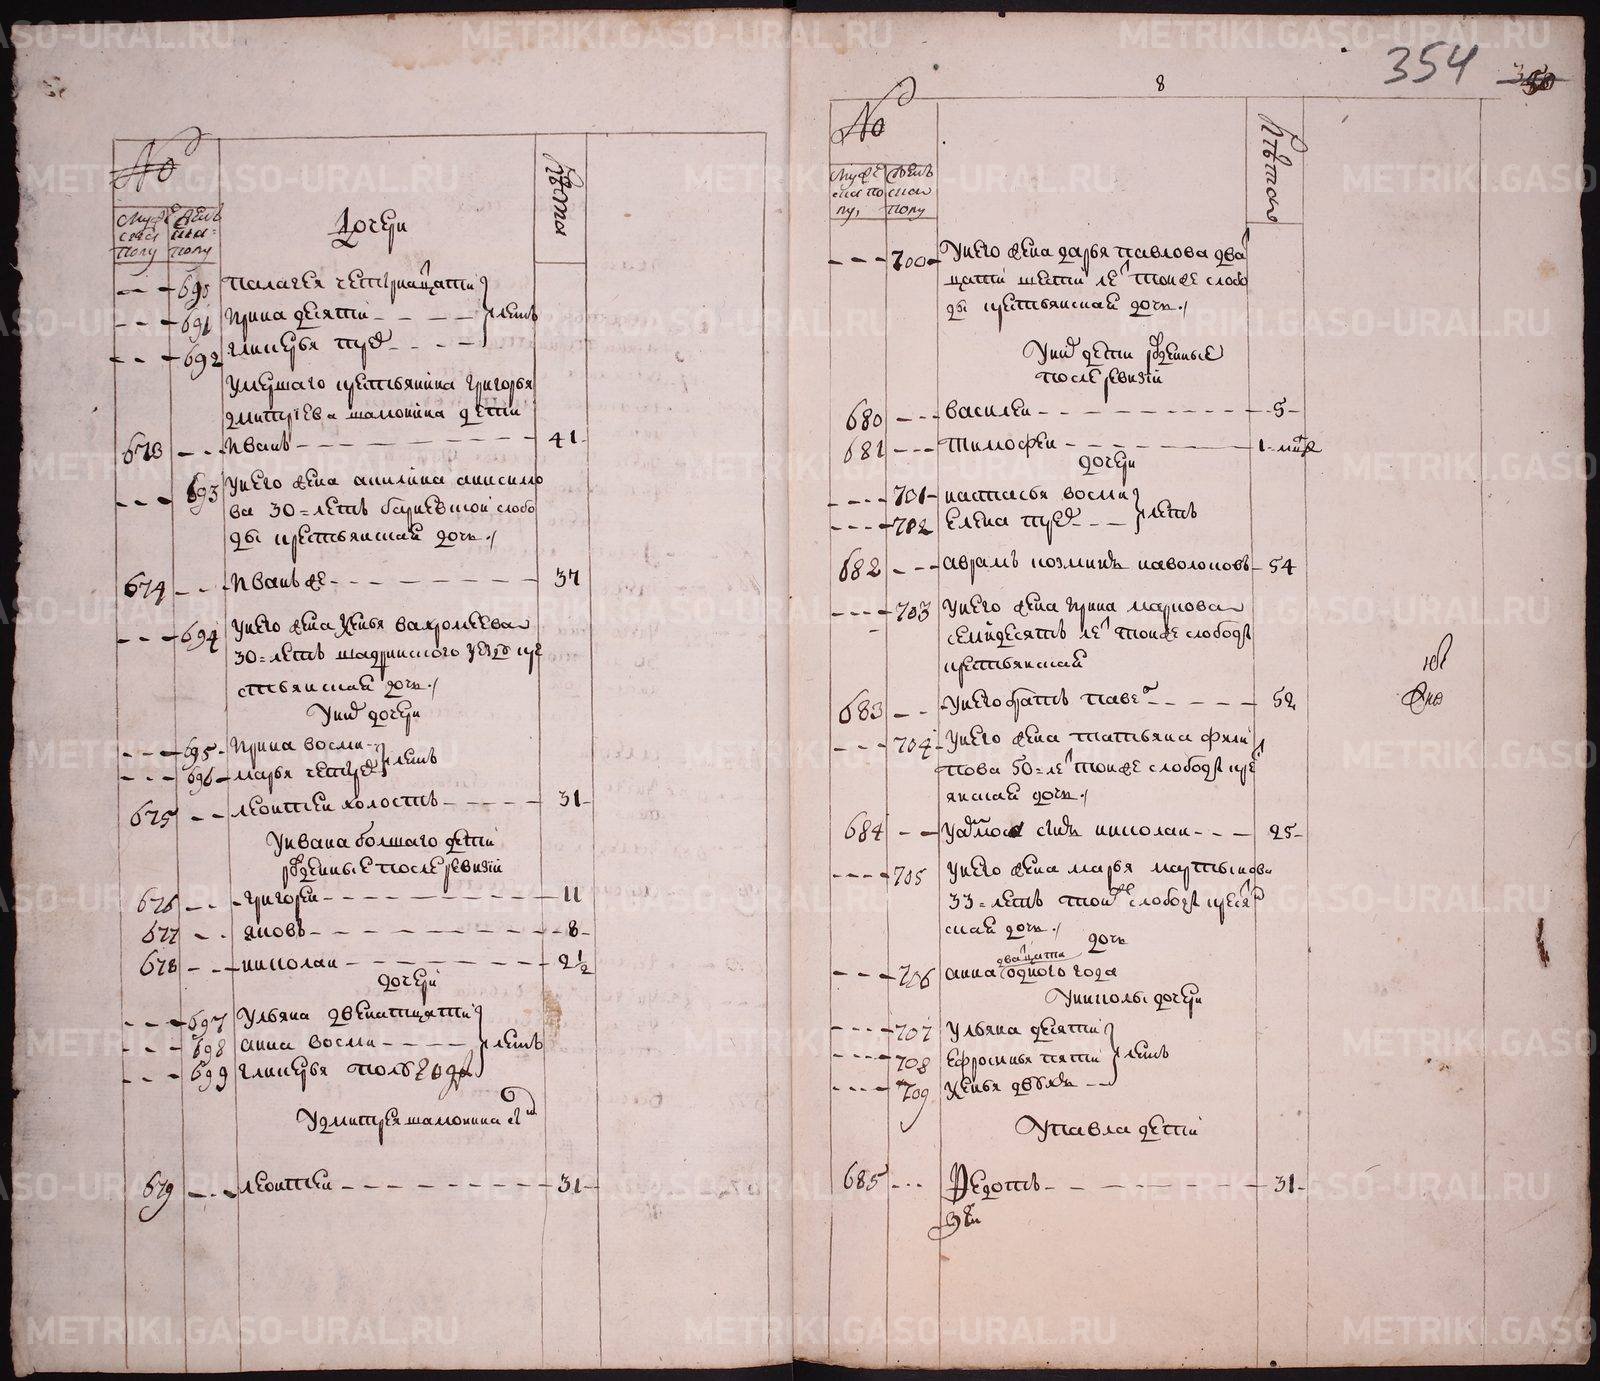 №
Муже
ска
полу
Жень
ска
полу
Дочери
Лета
690 Палагея четырнатцати
691 Ирина десяти летъ
692 Гликерья трех
Умершаго крестьянина Григорья
Дмитриева Шамонина дети
673 Иванъ 41
693 У него жена Акилина Анисимо
ва 30 = летъ Барневской слобо
ды крестьянская дочь
674 Иванъ же 37
694 У него жена Ксенья Вахромеева
30 = летъ Шадринского уезду кре
стьянская дочь
У них дочери
695 Ирина восми
696 Марья четырех летъ
675 Леонтеи холостъ 31
У Ивана болшаго дети
рожденные после ревизии
676 Григореи 11
677 Яковъ 8
678 Николаи 2 1/2
дочери
697 Ульяна двенатцати
698 Анна восми летъ
699 Гликерья полугода
У Дмитрея Шамонина
679 Леонтеи 31
8
354
№
Муже
ска по
лу
Жень
ска
полу
Которого
700 У него жена Дарья Павлова два
тцати шести лет тои же слобо
ды крестьянская дочь
У них дети рожденные
после ревизии
680 Василеи 5
681 Тимофеи 1
дочери
701 Настасья восми
702 Елена трех летъ
682 Аврамъ Козминъ Наволоковъ 54
703 У него жена Ирина Маркова
семидесятъ лет тои же слободы
крестьянская
683 У него братъ Павел 52
704 У него жена Татьяна Фили
пова 50 = лет тои же слободы кре
янская дочь
684 сынъ Николаи 25
705 У него жена Марья Мартынова
33 = летъ тои же слободы кресть
ская дочь
дочь
двацати
706 Анна одного года
У Николы дочери
707 Ульяна десяти
708 Ефросинья пяти летъ
709 Ксенья двухъ
У Павла дети
685 Федотъ 31